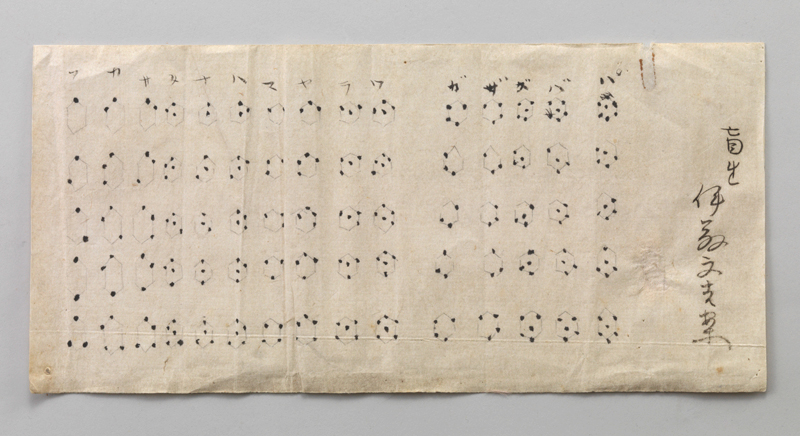 盲生 伊藤文吉案
ア カ サ タ ナ ハ マ ヤ ラ ワ ガ ザ ダ バ パ